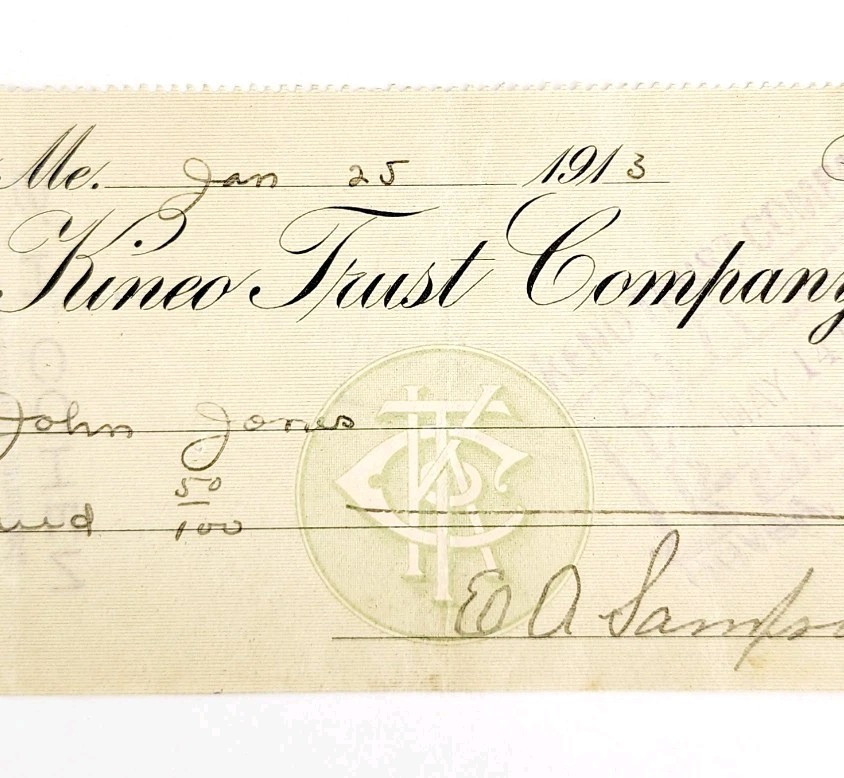 Me. Jan 25 1913
Kineo Trust Company
John Jones
and 50/100
E A Sampso
MAY 14